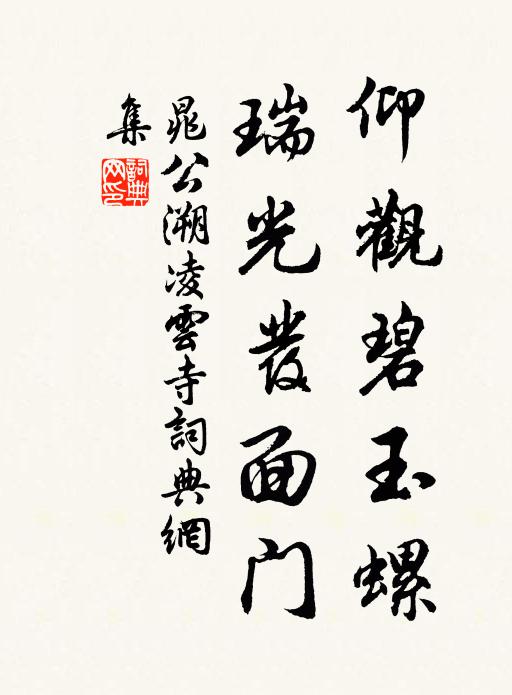 仰觀碧玉螺
瑞光發面门
晁公溯凌雲寺詞典網
集
詞典網印